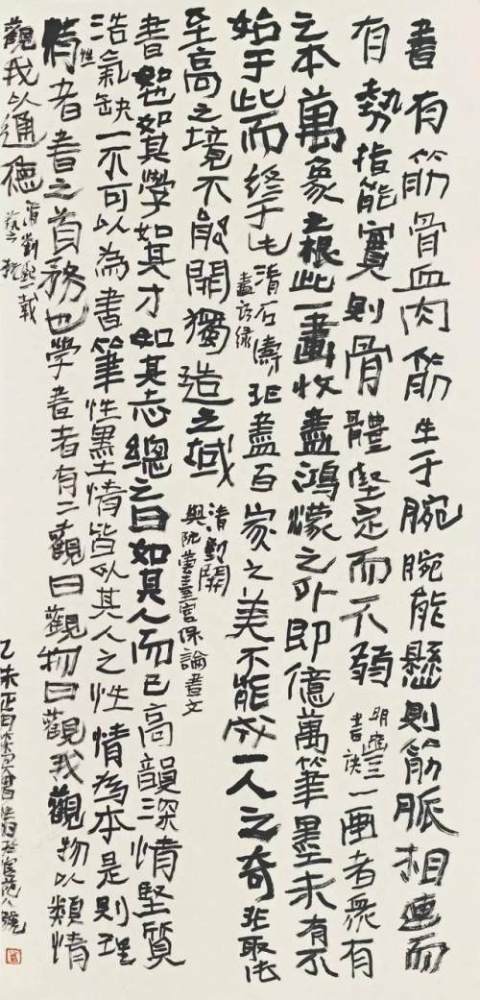 書有筋骨血肉筋生于腕腕能懸則筋脈相連而
有勢指能實則骨體堅定而不弱 明 書訣 一畫者眾有
之本萬象之根此一畫收盡鴻濛之外即億萬筆墨未有不
始于此而終于此 清石濤畫語錄 非盡百家之美不能成一人之奇非取法
至高之境不能開獨造之域 清劉開與阮芸臺宮保論書文
書如也如其學如其才如其志總之曰如其人而已高韻深情堅質
浩氣缺一不可以為書筆性墨情皆以其人之性情為本是則理
性情者書之首務也學書者有二觀曰觀物曰觀我觀物以類情
觀我以通德 清劉熙載藝概
乙未正月